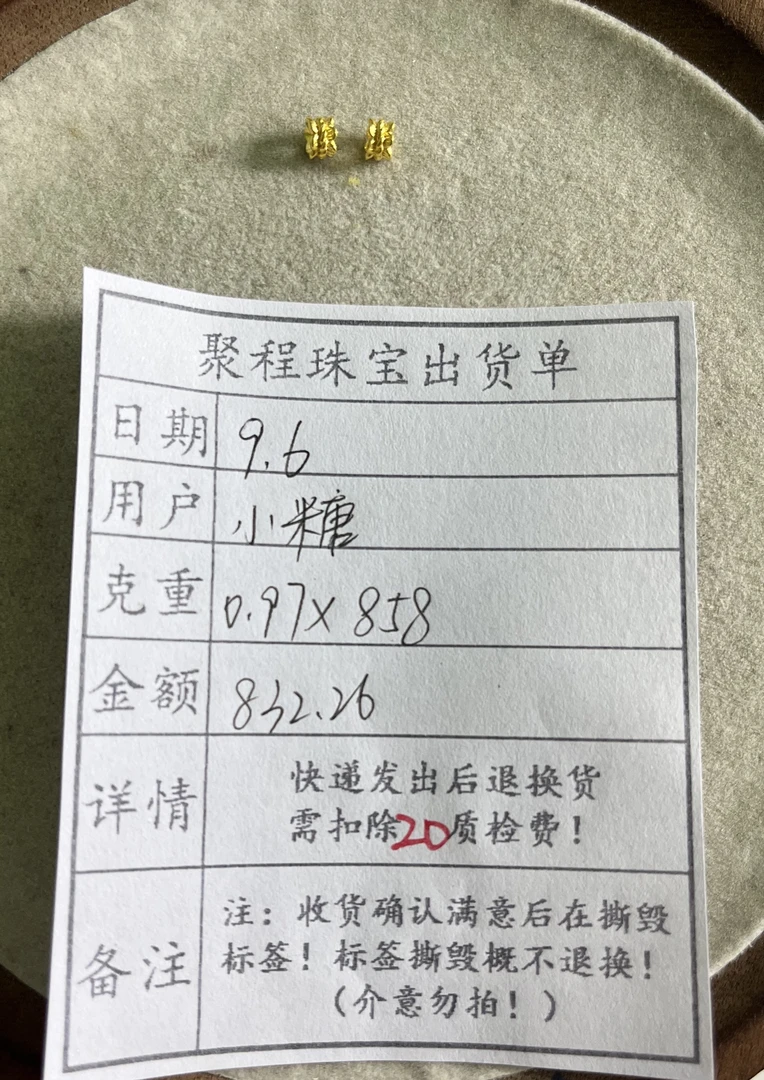 聚程珠宝出货单
日期 9.6
用户 小糖
克重 0.97×858
金额 832.26
详情 快递发出后退换货
需扣除20质检费！
备注 注：收货确认满意后在撕毁
标签！标签撕毁概不退换！
（介意勿拍！）